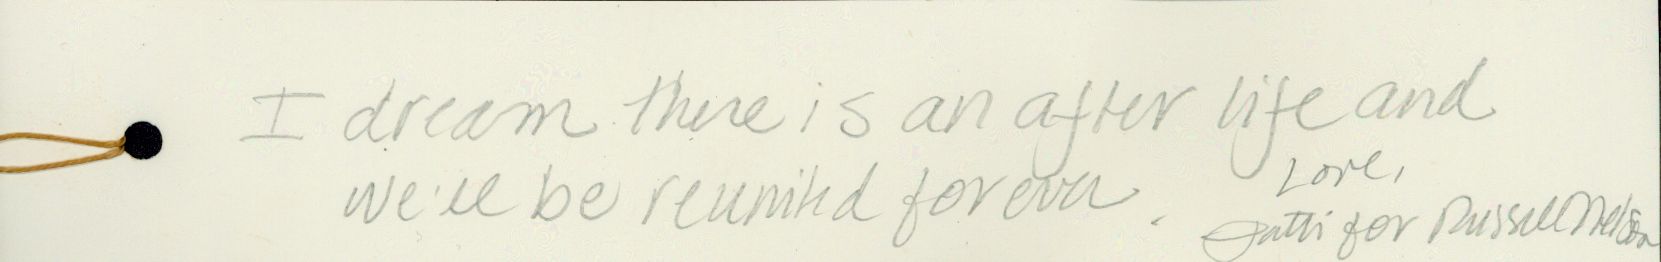 I dream there is an after life and
we'll be reunited forever.
Love,
Patti for Russell Nelson